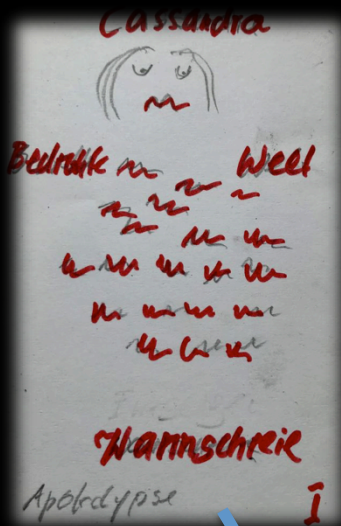 Cassandra
Bedrohte Welt
Warnschreie
Apokalypse I